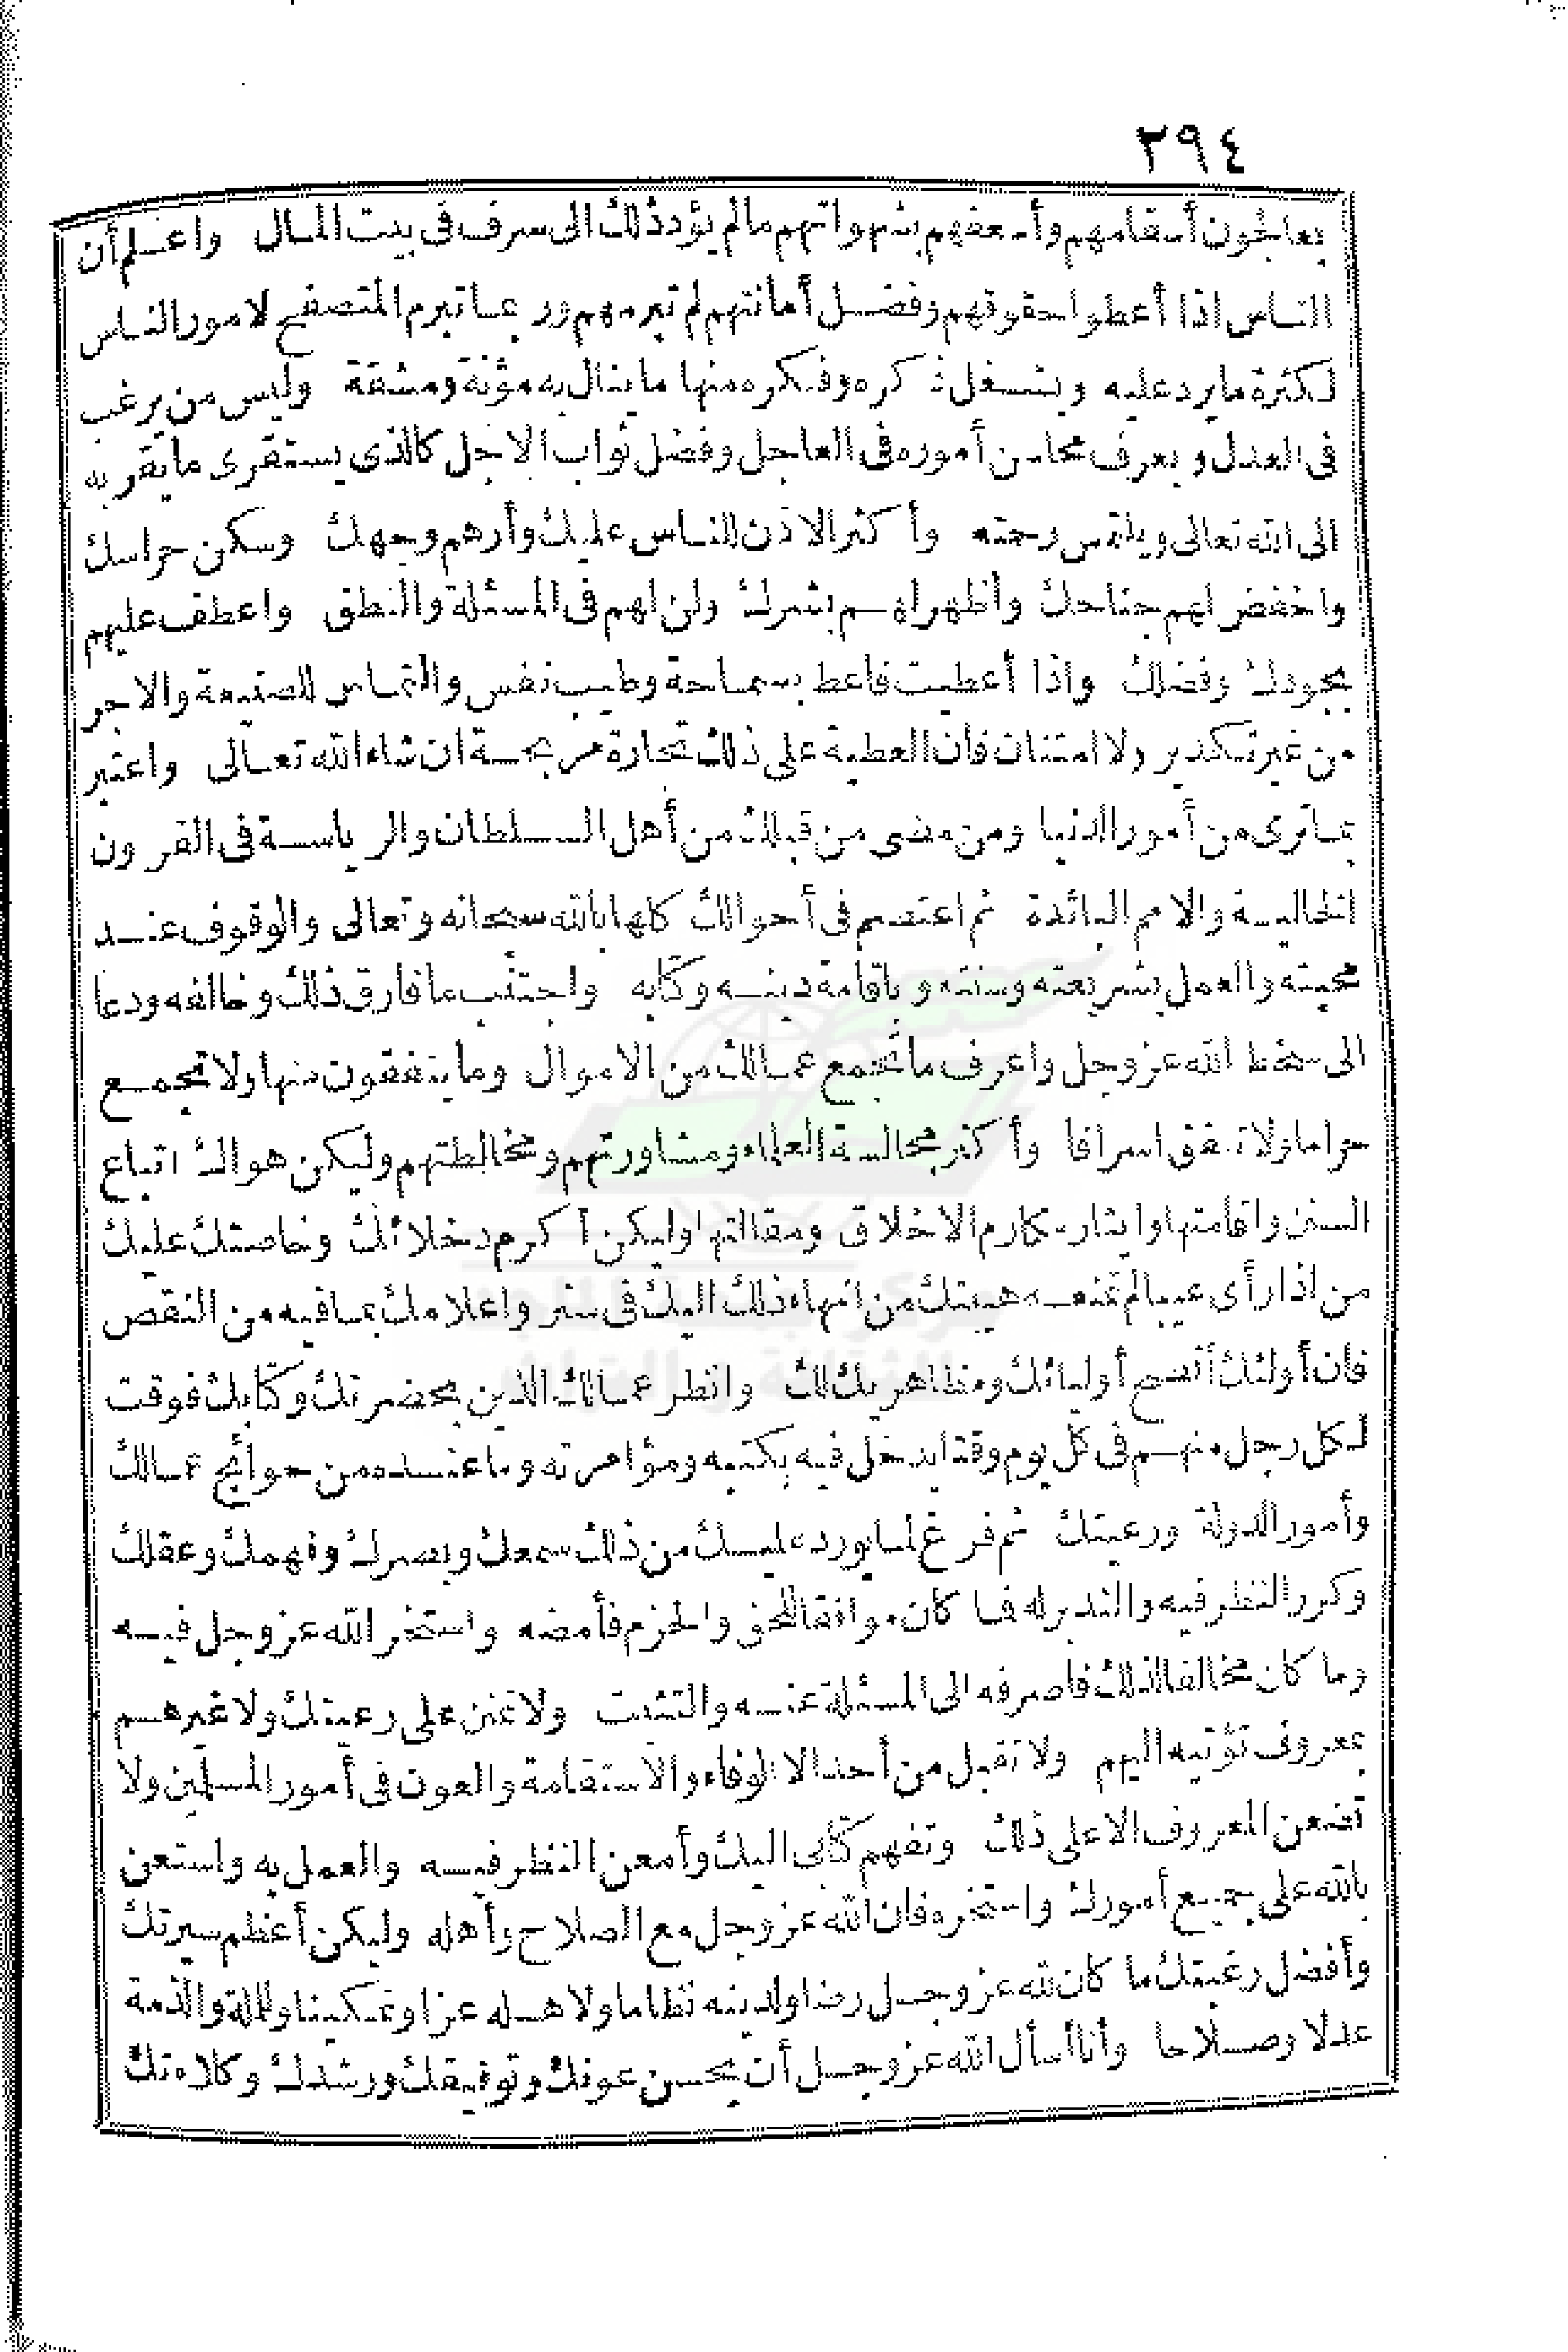 ٢٩٤
يعالجون أسقامهم وأسعفهم بشهواتهم مالم يؤد ذلك الى سرف فى بيت المال واعلم أن
الناس اذا أعطوا حقوقهم وفضل أمانتهم لم تبرمهم وربما تبرم المتصفح لامور الناس
لكثرة ما يرد عليه ويشغل ذكره وفكره منها ما ينال به مؤنة ومشقة وليس من يرغب
فى العدل ويعرف محاسن أموره فى العاجل وفضل ثواب الآجل كالذى يستقرى ما يقربه
الى الله تعالى ويلتمس رحمته وأكثر الاذن للناس عليك وأرهم وجهك وسكن حراسك
واخفض لهم جناحك وأظهر لهم بشرك ولن لهم فى المسئلة والنطق واعطف عليهم
بجودك وفضلك واذا أعطيت فاعط بسماحة وطيب نفس والتماس للصنيعة والاجر
من غير تكدير ولا امتنان فان العطية على ذلك تجارة مربحة ان شاء الله تعالى واعتبر
بما ترى من أمور الدنيا ومن مضى من قبلك من أهل السلطان والرياسة فى القرون
الخالية والامم البائدة ثم اعتصم فى أحوالك كلها بالله سبحانه وتعالى والوقوف عند
محبته والعمل بشريعته وسنته وباقامة دينه وكتابه واجتنب ما فارق ذلك وخالفه ودعا
الى سخط الله عز وجل واعرف ما تجمع عمالك من الاموال وما ينفقون منها ولا تجمع
حراما ولا تنفق اسرافا وأكثر مجالسة العلماء ومشاورتهم ومخالطتهم وليكن هواك اتباع
السنن واقامتها وايثار مكارم الاخلاق ومقالتها وليكن أكرم دخلائك وخاصتك عليك
من اذا رأى عيبا لم تمنعه هيبتك من انهاء ذلك اليك فى ستر واعلامك بما فيه من النقص
فان أولئك أنصح أوليائك ومظاهريك لك وانظر عمالك الذين بحضرتك وكتابك فوقت
لكل رجل منهم فى كل يوم وقتا يدخل فيه بكتبه ومؤامرته وما عنده من حوائج عمالك
وأمور الدولة ورعيتك ثم فرغ لما يورد عليك من ذلك سمعك وبصرك وفهمك وعقلك
وكرر النظر فيه والتدبر له فما كان موافقا للحق والحزم فأمضه واستخر الله عز وجل فيه
وما كان مخالفا لذلك فاصرفه الى المسئلة عنه والتثبت ولا تمنن على رعيتك ولا غيرهم
بمعروف تؤتيه اليهم ولا تقبل من أحد الا الوفاء والاستقامة والعون فى أمور المسلمين ولا
تضعن المعروف الا على ذلك وتفهم كتابى اليك وأمعن النظر فيه والعمل به واستعن
بالله على جميع أمورك واستخره فان الله عز وجل مع الصلاح وأهله وليكن أعظم سيرتك
وأفضل رغبتك ما كان لله عز وجل رضا ولدينه نظاما ولاهله عزا وتمكينا وللملة والذمة
عدلا وصلاحا وأنا أسأل الله عز وجل أن يحسن عونك وتوفيقك ورشدك وكلاءتك